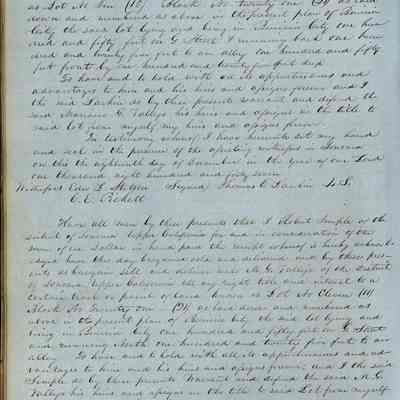 as Lot No Ten (10) Block No twenty one (21) as laid
down and numbered as above in the present plan of Benicia
City the said lot lying and being in Benicia City one hun
dred and fifty feet on G Street & running back one hun
dred and twenty five feet to an alley one hundred and fifty
feet front by one hundred and twenty five feet deep
To have and to hold with all its appurtenances and
advantages to him and his heirs and assigns forever and I
the said Larkin do by these presents warrant and defend the
said Mariano G. Vallejo his heirs and assigns in the title to
said lot from myself my heirs and assigns forever
In testimony whereof I have hereunto set my hand
and seal in the presence of the attesting witnesses in Sonoma
on this the eighteenth day of December in the year of our Lord
one thousand eight hundred and forty seven
Witnesses Signed Thomas O. Larkin L.S.
C. E. Pickett
Know all men by these presents that I Robert Semple of the
district of Sonoma Upper California for and in consideration of the
sum of one Dollar in hand paid the receipt whereof is hereby acknowl
edged have this day bargained sold and delivered and by these pres
ents do bargain sell and deliver unto M. G. Vallejo of the district
of Sonoma Upper California all my right title and interest to a
certain tract or parcel of land known as Lot No Eleven (11)
Block No Twenty One (21) as laid down and numbered as
above in the present plan of Benicia City the said lot lying and
being in Benicia City one hundred and fifty feet on G Street
and running North one hundred and twenty five feet to an
alley To have and to hold with all its appurtenances and ad
vantages to him and his heirs and assigns forever and I the said
Semple do by these presents Warrant and defend the said M. G.
Vallejo his heirs and assigns in the title to said Lot from myself